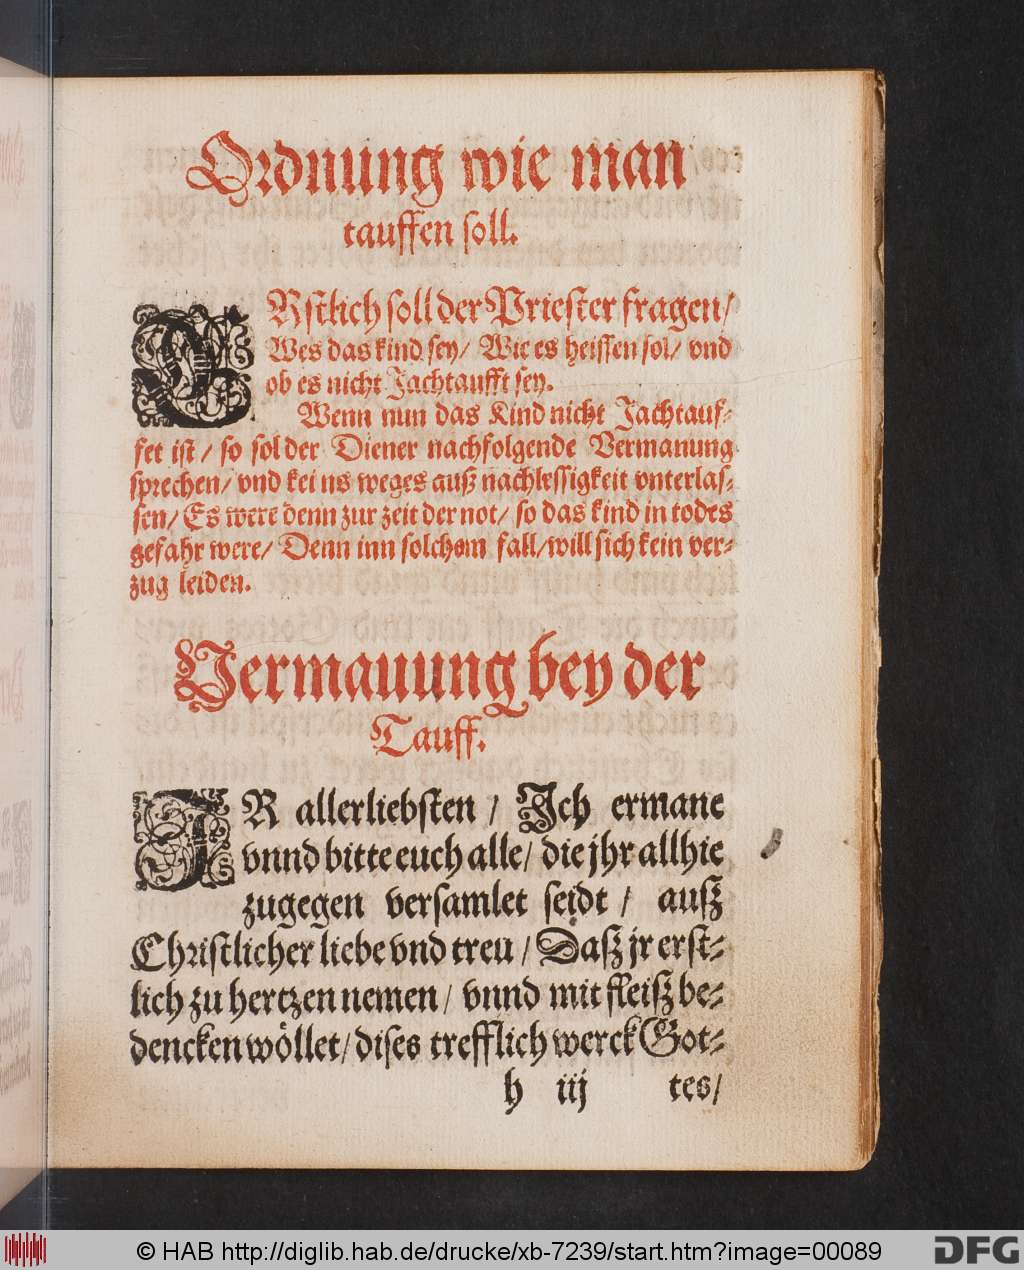 Ordnung wie man
tauffen soll.
ERstlich soll der Priester fragen/
Wes das kind sey/ Wie es heissen sol/ vnd
ob es nicht Jachtaufft sey.
Wenn nun das Kind nicht Jachtauf-
fet ist / so sol der Diener nachfolgende Vermanung
sprechen/ vnd kei ns weges auß nachlessigkeit vnterlas-
sen/ Es were denn zur zeit der not/ so das kind in todes
gefahr were/ Denn inn solchem fall/ will sich kein ver-
zug leiden.
Vermauung bey der
Tauff.
IR allerliebsten / Ich ermane
vnnd bitte euch alle/ die jhr allhie
zugegen versamlet seidt / auß
Christlicher liebe vnd treu / Daß jr erst-
lich zu hertzen nemen/ vnnd mit fleiß be-
dencken wöllet/ dises trefflich werck Got-
h iij tes/
© HAB http://diglib.hab.de/drucke/xb-7239/start.htm?image=00089
DFG